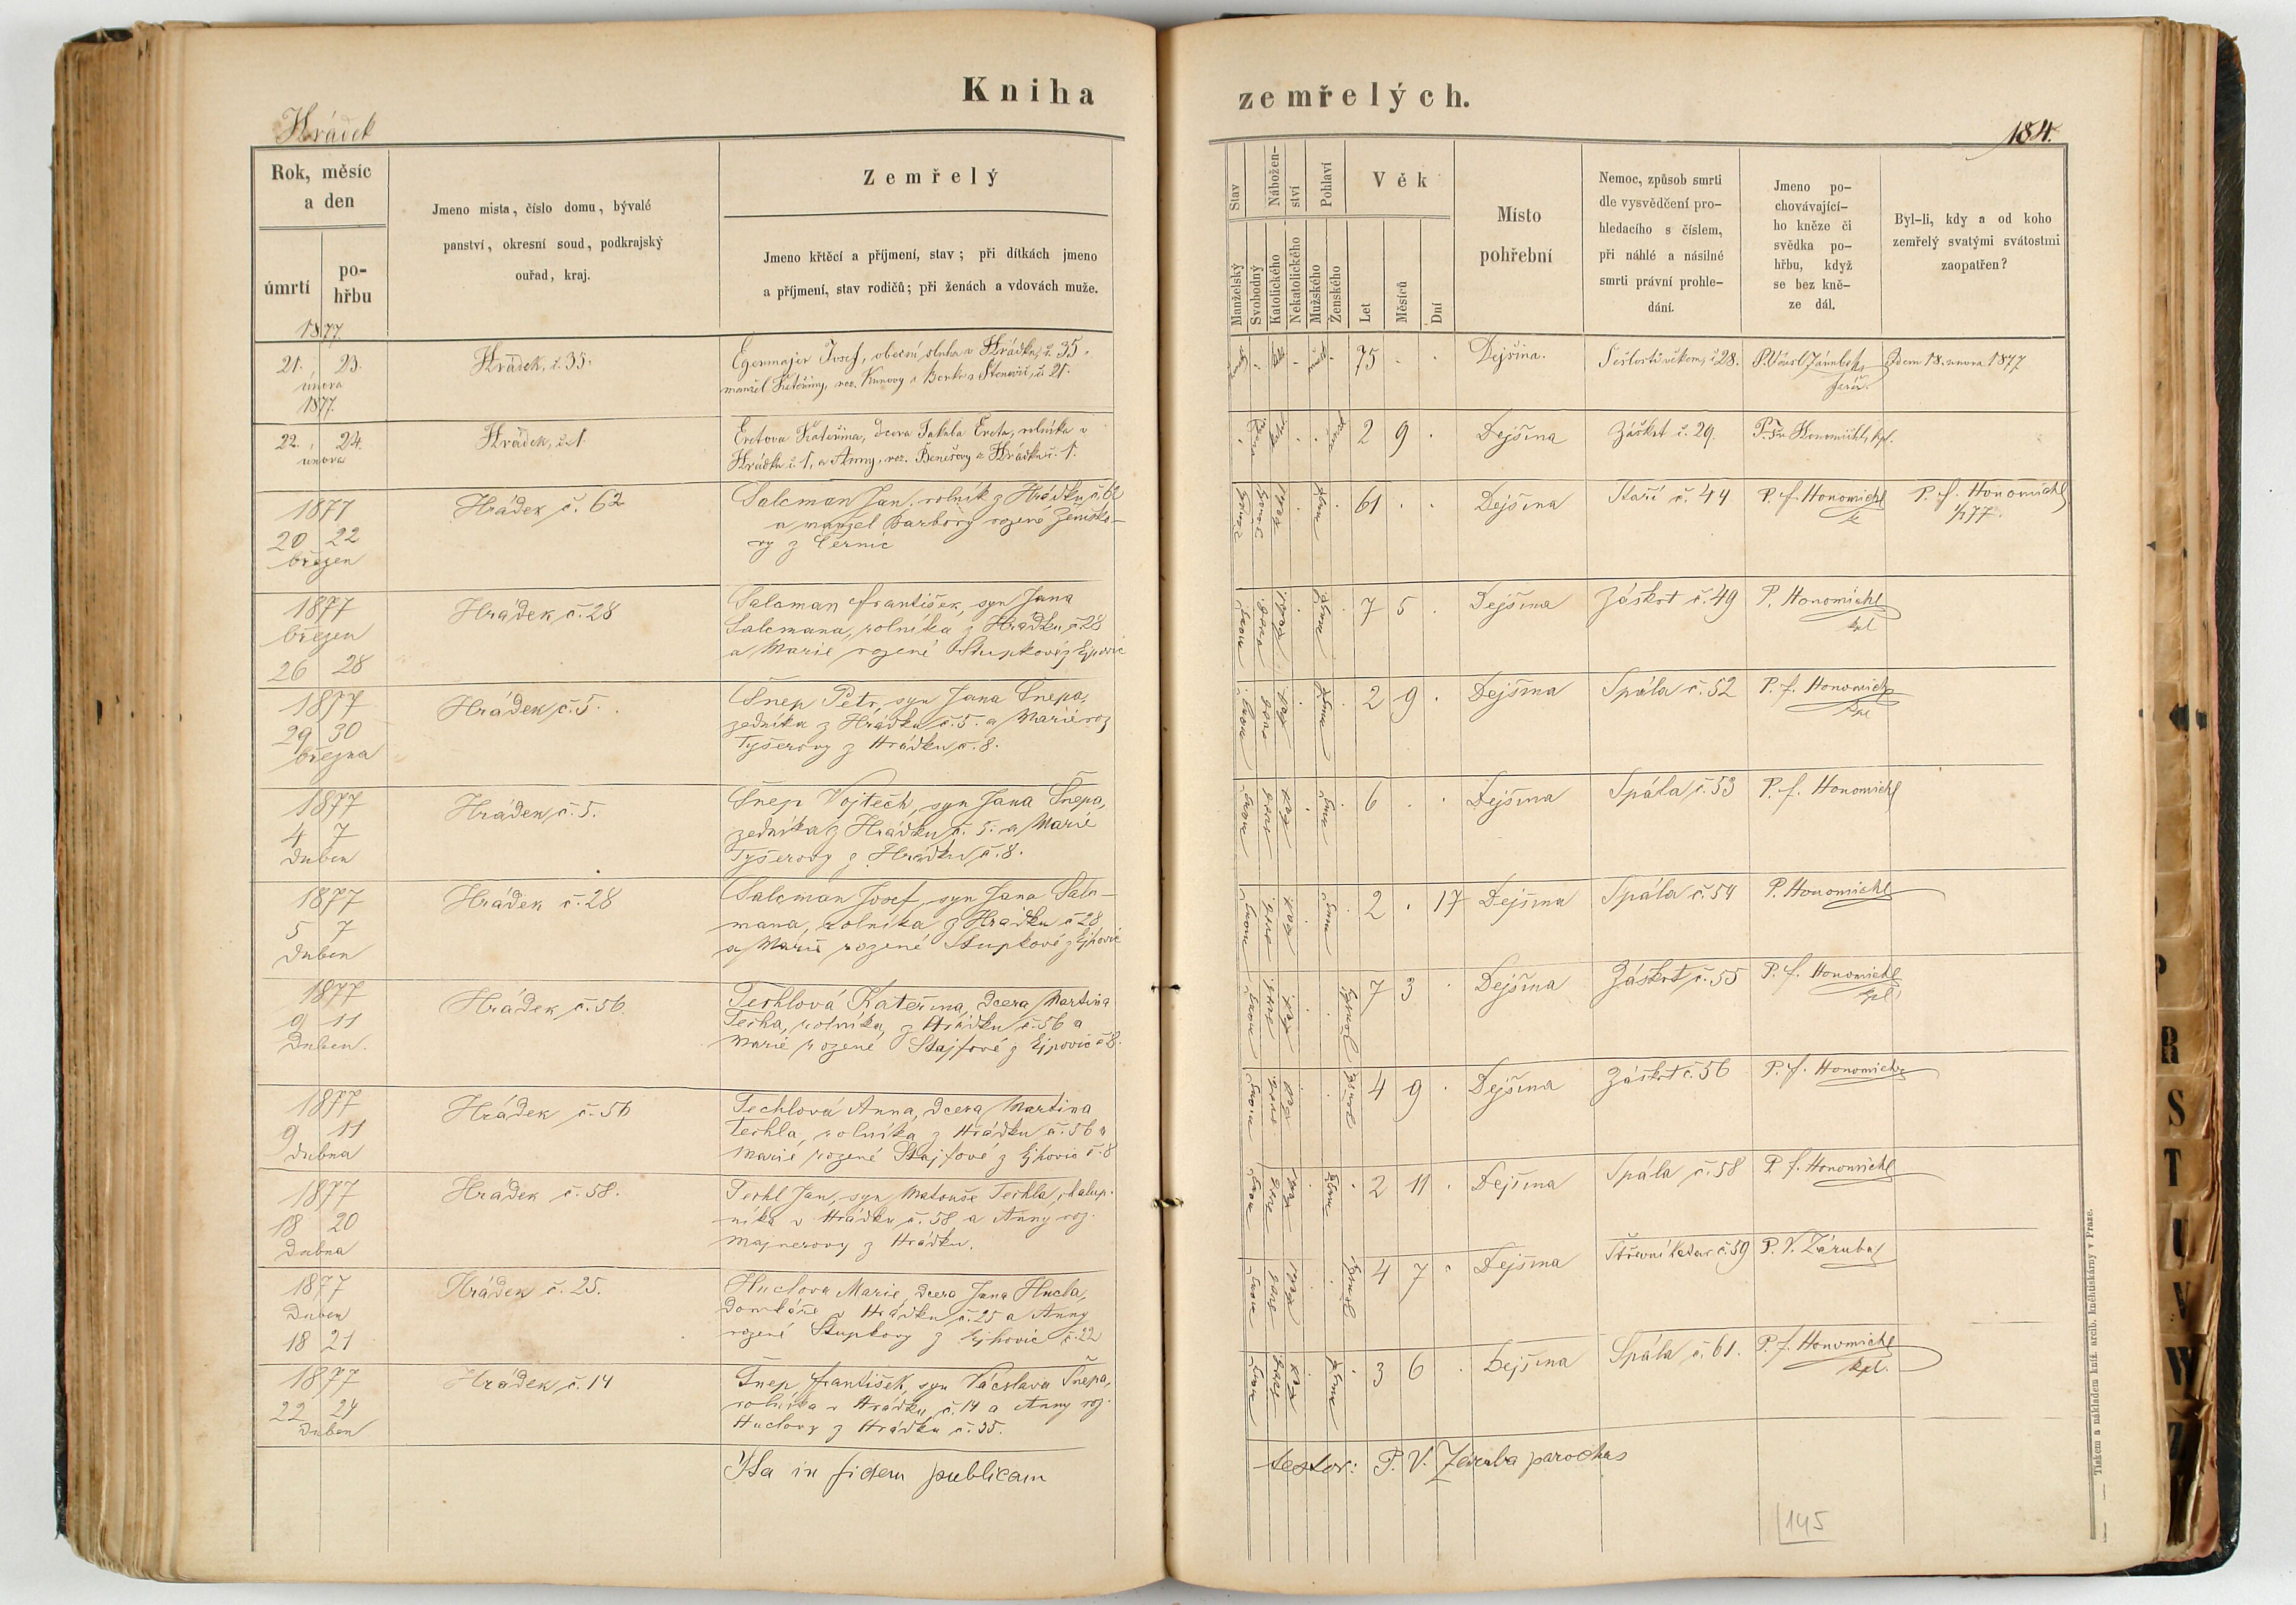 Kniha zemřelých.
Hrádek
184.
Rok, měsíc
a den
úmrtí
po-
hřbu
Jmeno mista, číslo domu, bývalé
panství, okresní soud, podkrajský
ouřad, kraj.
Zemřelý
Jmeno křtěcí a příjmení, stav; při dítkách jmeno
a příjmení, stav rodičů; při ženách a vdovách muže.
Stav
Manželský
Svobodný
Nábožen-
ství
Katolického
Nekatolického
Pohlaví
Mužského
Ženského
Věk
Let
Měsíců
Dní
Místo
pohřební
Nemoc, způsob smrti
dle vysvědčení pro-
hledacího s číslem,
při náhlé a násilné
smrti právní prohle-
dání.
Jmeno po-
chovávající-
ho kněze či
svědka po-
hřbu, když
se bez kně-
ze dál.
Byl-li, kdy a od koho
zemřelý svatými svátostmi
zaopatřen?
1877.
21. 23.
února
Hrádek, č. 35.
Egermajer Josef, obecní sluha v Hrádku, č. 35,
manžel Kateřiny, roz.
75
Dejšina.
Sešlostí věkem, č 28.
farář.
Idem 18. února 1877
1877.
22. 24.
února
Hrádek, č. 1.
Kateřina, dcera Jakuba rolníka v
Hrádku č. 1, a Anny, roz. Benešovy z Hrádku č. 1.
2 9
Dejšina
Záškrt č. 29.
P. Fr. Honomichl, kpl.
1877
20 22
březen
Hrádek č. 62
Salcman Jan, rolník z Hrádku č. 62
a manžel Barbory rozené
z Černic
61
Dejšina
Staří č. 44
P. f. Honomichl
P. f. Honomichl
1877
březen
26 28
Hrádek č. 28
Salcman František, syn Jana
Salcmana, rolníka z Hrádku č. 28
a Marie rozené Stupkové z Ejpovic
7 5
Dejšina
Záškrt č. 49
P. Honomichl
kpl
1877
29 30
března
Hrádek č. 5.
Šnep Petr, syn Jana Šnepa,
zedníka z Hrádku č. 5. a Marie roz
Tyšerovy z Hrádku č. 8.
2 9
Dejšina
Spála č. 52
P. f. Honomichl
kpl
1877
4 7
Duben
Hrádek č. 5.
Šnep Vojtěch, syn Jana Šnepa,
zedníka z Hrádku č. 5. a Marie
Tyšerovy z Hrádku č. 8.
6
Dejšina
Spála č. 53
P. f. Honomichl
1877
5 7
Duben
Hrádek č. 28
Salcman Josef, syn Jana Salc-
mana, rolníka z Hrádku č 28
a Marie rozené Stupkové z Ejpovic
2 17
Dejšina
Spála č. 54
P. Honomichl
1877
9 11
Duben.
Hrádek č. 56.
Terhlová Kateřina, dcera Martina
Terha, rolníka z Hrádku č. 56 a
Marie rozené Stajfové z Ejpovic č 8.
7 3
Dejšina
Záškrt č. 55
P. f. Honomichl
kpl
1877
9 11
Dubna
Hrádek č. 56
Techlová Anna, dcera Martina
Terhla, rolníka z Hrádku č. 56 a
Marie rozené Stajfové z Ejpovic č. 8
4 9
Dejšina
Záškrt č. 56
P. f. Honomichl
1877
18 20
Dubna
Hrádek č. 58.
Terhl Jan, syn Matouše Terhla, chalup-
níka v Hrádku č. 58 a Anny roz.
Majnerovy z Hrádku.
2 11
Dejšina
Spála č. 58
P. f. Honomichl
1877
Duben
18 21
Hrádek č. 25.
Huclova Marie, dcera Jana Hucla,
Domkáře v Hrádku č. 25 a Anny
rozené Stupkovy z Ejpovic č. 22
4 7
Dejšina
Střevní katar č. 59
P. V. Záruba
1877
22 24
Duben
Hrádek č. 14
Šnep František, syn Václava Šnepa,
rolníka v Hrádku č. 14 a Anny roz.
Huclovy z Hrádku č. 35.
3 6
Dejšina
Spála č. 61.
P. f. Honomichl
kpl.
Ita in fidem publicam testor: P. V. Záruba parochus
145
Tiskem a nákladem kníž. arcib. kněhtiskárny v Praze.
P
R
S
T
U
V
W
Z